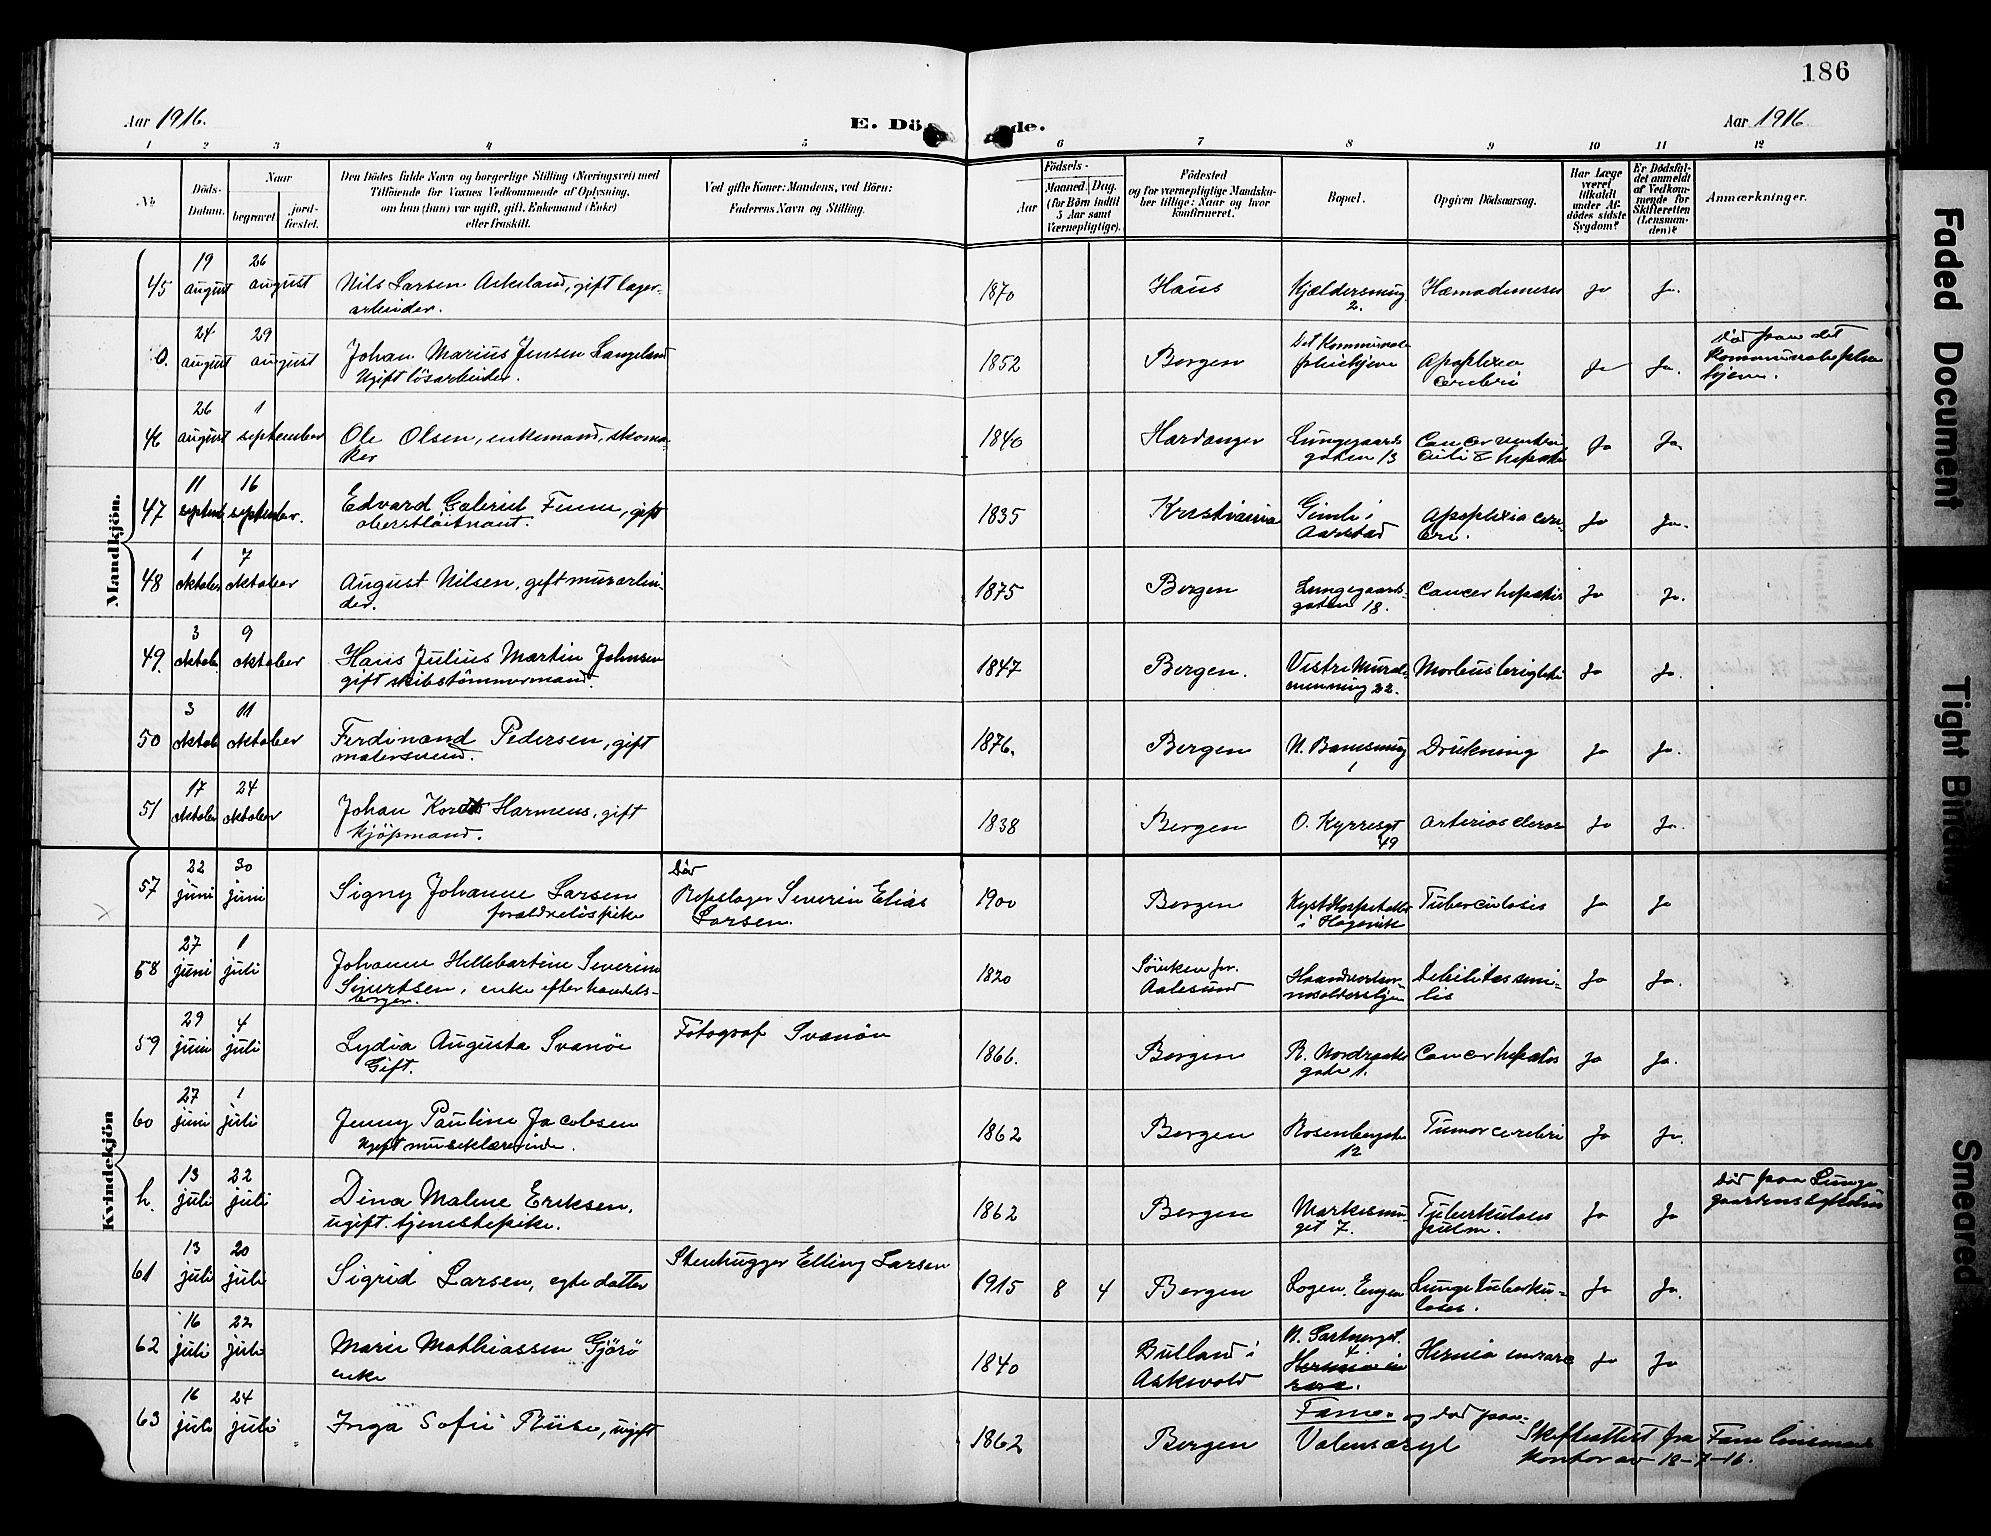 186
Aar 1916.
E. Dö de.
Aar 1916
1 2 3 4 5 6 7 8 9 10 11 12
No
Döds-
Datum.
Naar
begravet
jord-
fæstet.
Den Dödes fulde Navn og borgerlige Stilling (Næringsvei) med
Tilföiende for Voxnes Vedkommende af Oplysning,
om han (hun) var ugift, gift, Enkemand (Enke)
eller fraskilt.
Ved gifte Koner: Mandens, ved Börn:
Faderens Navn og Stilling.
Födsels-
Aar
Maaned. Dag.
(for Börn indtil
5 Aar samt
Værnepligtige).
Födested
og for værnepligtige Mandska-
ber tillige: Naar og hvor
konfirmeret.
Bopæl.
Opgiven Dödsaarsag.
Har Læge
været
tilkaldt
under Af-
dödes sidste
Sygdom?
Er Dödsfal-
det anmeldt
af Vedkom-
mende for
Skifteretten
(Lensman-
den)?
Anmærkninger.
Mandkjön.
45 19 august 26 august Nils Larsen Askeland, gift lager-
arbeider. 1870 Haus Kjældersmug
2. Ja Ja.
0. 24 august 29 august Johan Marius Jensen Langeland
Ugift lösarbeider. 1852 Bergen Det Kommunale
pleiehjem Apoplexia
cerebri Ja Ja. Död paa det
Kommunale pleie
hjem.
46 26 august 1 september Ole Olsen, enkemand, skoma-
ker 1840 Hardanger Lungegaards
gaten 13 Cancer ventri
culi & hepatis Ja Ja.
47 11 septemb 16 september. Edvard Gabriel Finne, gift
oberstlöitnant. 1835 Kristiania Gimle i
Aarstad Apoplexia cere-
bri. Ja Ja.
48 1 oktober 7 oktober August Nilsen, gift murarbei-
der. 1875 Bergen Lungegaards-
gaten 18. Cancer hepatis Ja Ja.
49. 3 oktob. 9 oktober Hans Julius Martin Johnsen
gift skibstömmermand. 1847 Bergen. Vestre Mural-
menning 22. Morbus brightii Ja Ja.
50 3 oktob 11 oktober Ferdinand Pedersen, gift
malersvend. 1876. Bergen 1 Drukning Ja Ja.
51 17 oktober 24 oktober Johan Kordt Harmens, gift
kjöpmand. 1838 Bergen O. Kyrresgt
49 Arterioscleros Ja Ja.
Kvindekjön
57 22 juni 30 juni Signy Johanne Larsen
forældrelös pike Död
Repslager Severin Elias
Larsen. 1900 Bergen Kysthospitalet
i Hagevik Tuberculosis Ja Ja
58 27 juni 1 juli Johanne Hellebartine Severine
Sivertsen, enke efter handels-
borger. 1820 Aalesund Debilitas seni-
lis Ja Ja.
59 29 juni 4 juli Lydia Augusta Svanöe
Gift. Fotograf Svanöe 1866. Bergen R. Nordraaks
gade 1. Cancer hepatis Ja Ja.
60 27 juni 1 juli Jenny Pauline Jacobsen
Ugift musiklærerinde. 1862 Bergen Rosenbergsgt
12 Tumor cerebri Ja Ja.
h. 13 juli 22 juli Dina Malene Eriksen,
ugift. tjenestepike. 1862 Bergen Markesmu-
get 7. Tuberkulosis
pulm. Ja Ja Död paa Lunge
gaardens
61 13 juli 20 juli Sigrid Larsen, egte datter Stenhugger Elling Larsen 1915 8 4 Bergen Logen, Engen Lungetuberku-
lose. Ja Ja.
62 16 juli 22 juli Marie Mathiassen Gjörö
enke 1840 Bulland i
Askvold 4 Hernia Ja Ja
63 16 juli 24 juli Inga Sofie Riise, ugift 1862 Bergen Fane. og död paa
Skifteattest fra Fane lensmans
kontor av 18-7-16.
Faded Document
Tight Binding
Smeared